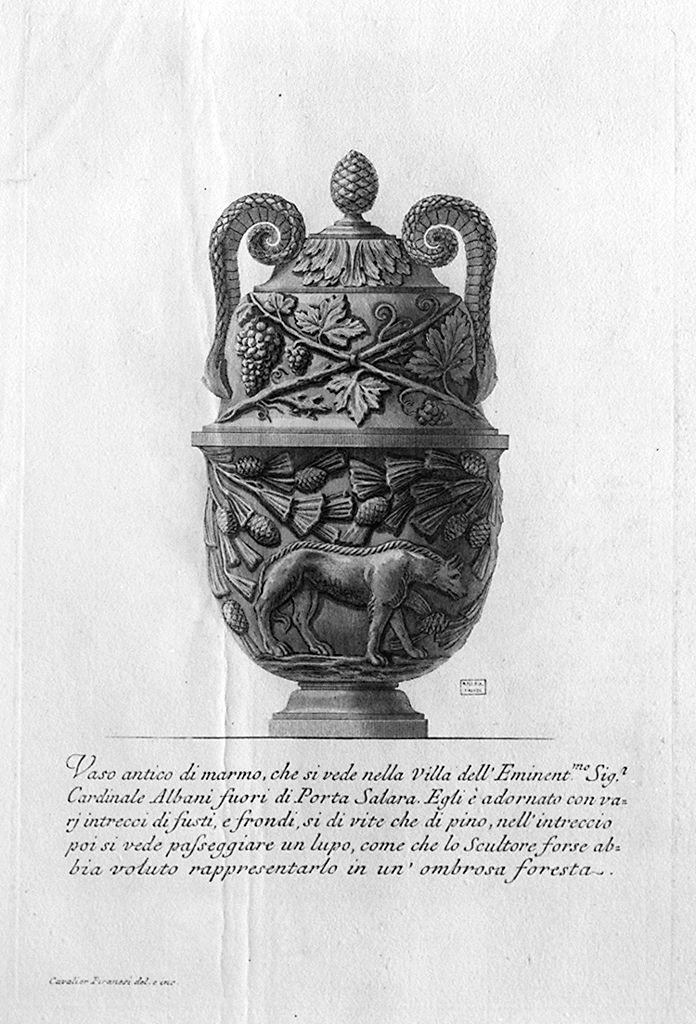 Vaso antico di marmo, che si vede nella Villa dell'Eminent.mo Sig.r
Cardinale Albani fuori di Porta Salara. Egli è adornato con va=
rj intrecci di fusti, e frondi, sì di vite che di pino, nell'intreccio
poi si vede paſseggiare un lupo, come che lo Scultore forse ab=
bia voluto rappresentarlo in un' ombrosa foresta.
Cavalier Piranesi del. e inc.